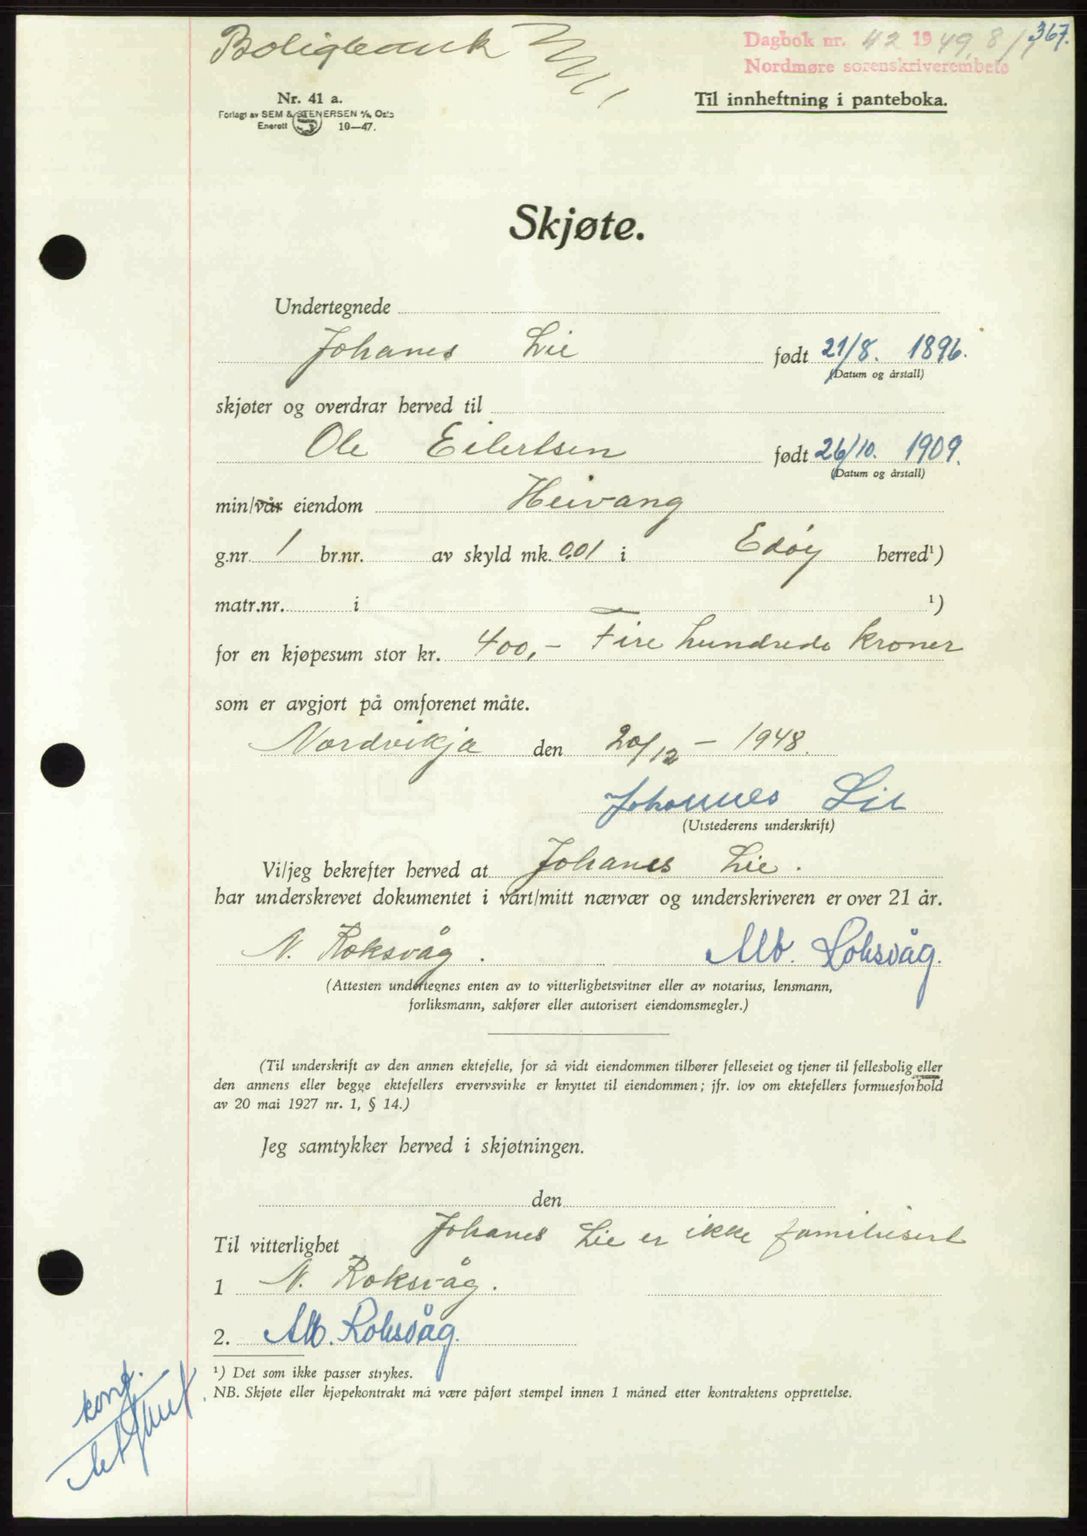 Boligbank
Dagbok nr. 42 1949, 8/1
367.
Nordmøre sorenskriverembete
Nr. 41 a.
Forlagt av SEM & STENERSEN A/s, Oslo
Enerett 10—47.
Til innheftning i panteboka.
Skjøte.
Undertegnede
Johanes Lie født 21/8. 1896.
(Datum og årstall)
skjøter og overdrar herved til
Ole Eilertsen født 26/10. 1909.
(Datum og årstall)
min/vår eiendom Heivang
g.nr. 1 br.nr. av skyld mk. 0.01 i Edøy herred¹)
matr.nr. i ¹)
for en kjøpesum stor kr. 400,- Fire hundrede kroner
som er avgjort på omforenet måte.
Nordvikja den 20/12 - 1948.
Johannes Lie
(Utstederens underskrift)
Vi/jeg bekrefter herved at Johanes Lie.
har underskrevet dokumentet i vårt/mitt nærvær og underskriveren er over 21 år.
N. Roksvåg. Alb. Roksvåg.
(Attesten undertegnes enten av to vitterlighetsvitner eller av notarius, lensmann,
forliksmann, sakfører eller autorisert eiendomsmegler.)
(Til underskrift av den annen ektefelle, for så vidt eiendommen tilhører felleseiet og tjener til fellesbolig eller
den annens eller begge ektefellers ervervsvirke er knyttet til eiendommen; jfr. lov om ektefellers formuesforhold
av 20 mai 1927 nr. 1, § 14.)
Jeg samtykker herved i skjøtningen.
den
Til vitterlighet Johanes Lie er ikke familiisert
1 N. Roksvåg.
2. Alb. Roksvåg.
¹) Det som ikke passer strykes.
NB. Skjøte eller kjøpekontrakt må være påført stempel innen 1 måned etter kontraktens opprettelse.
konf.